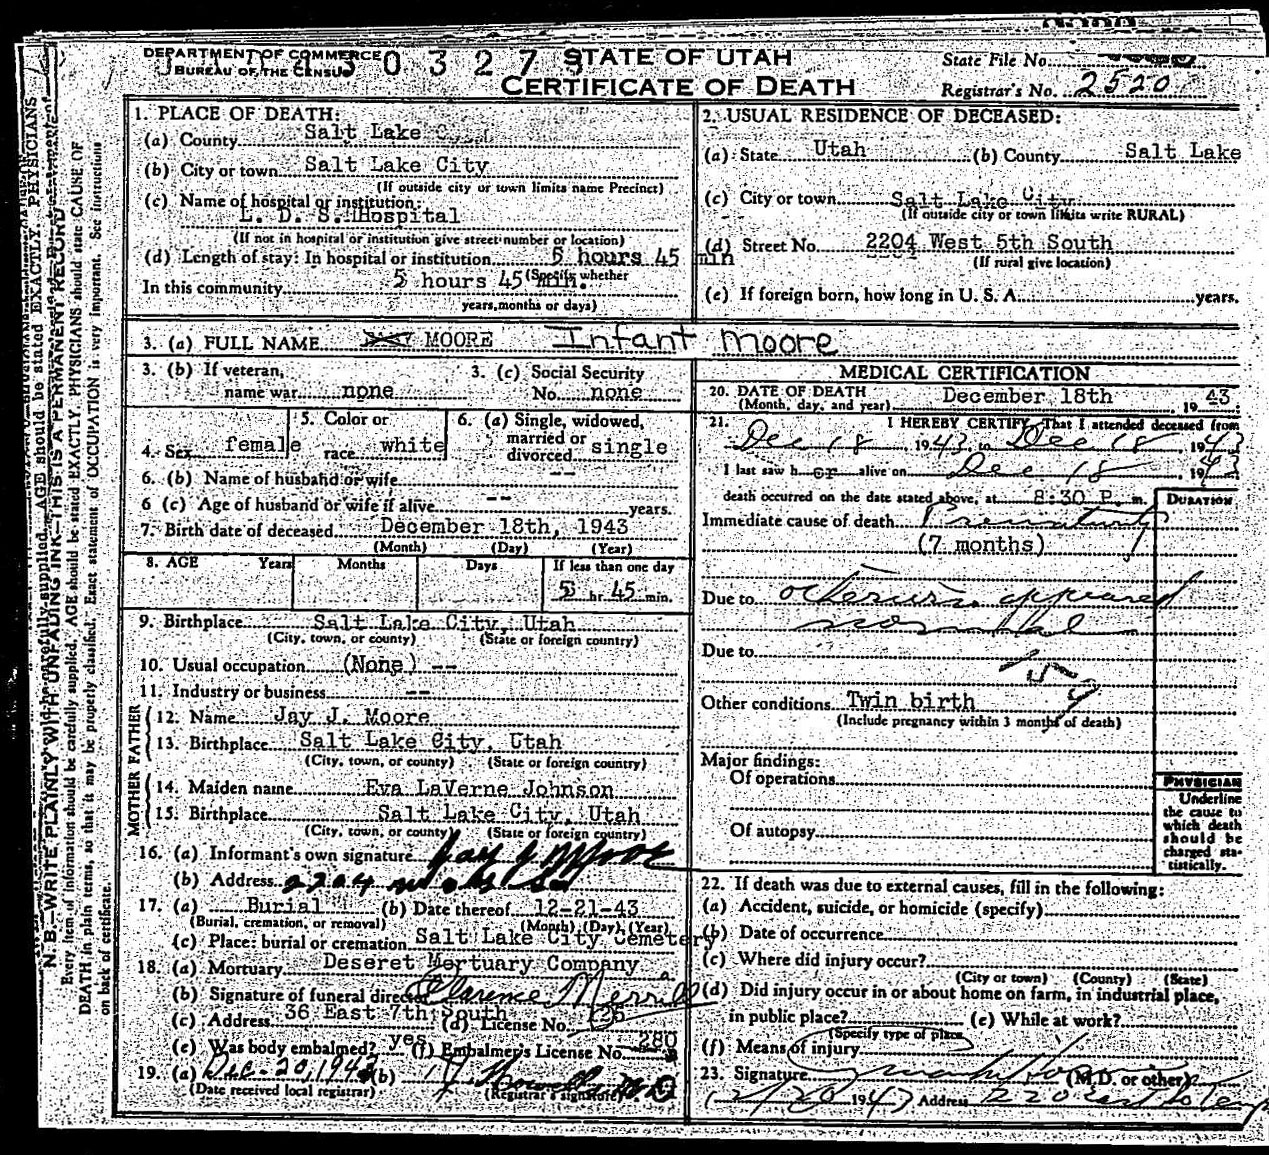 DEPARTMENT OF COMMERCE
BUREAU OF THE CENSUS
STATE OF UTAH
CERTIFICATE OF DEATH
State File No.
Registrar's No. 2520
1. PLACE OF DEATH:
(a) County Salt Lake
(b) City or town Salt Lake City
(If outside city or town limits name Precinct)
(c) Name of hospital or institution:
L. D. S. Hospital
(If not in hospital or institution give street number or location)
(d) Length of stay: In hospital or institution 5 hours 45 min
In this community 5 hours 45 min. (Specify whether
years, months or days)
2. USUAL RESIDENCE OF DECEASED:
(a) State Utah (b) County Salt Lake
(c) City or town Salt Lake City
(If outside city or town limits write RURAL)
(d) Street No. 2204 West 5th South
(If rural give location)
(e) If foreign born, how long in U. S. A. years.
3. (a) FULL NAME MOORE Infant Moore
3. (b) If veteran, name war none
3. (c) Social Security No. none
4. Sex female
5. Color or race white
6. (a) Single, widowed, married or divorced single
6. (b) Name of husband or wife --
6 (c) Age of husband or wife if alive -- years.
7. Birth date of deceased December 18th, 1943
(Month) (Day) (Year)
8. AGE Years Months Days If less than one day
5 hr. 45 min.
9. Birthplace Salt Lake City, Utah
(City, town, or county) (State or foreign country)
10. Usual occupation (None) --
11. Industry or business --
FATHER
12. Name Jay J. Moore
13. Birthplace Salt Lake City, Utah
(City, town, or county) (State or foreign country)
MOTHER
14. Maiden name Eva LaVerne Johnson
15. Birthplace Salt Lake City, Utah
(City, town, or county) (State or foreign country)
16. (a) Informant's own signature Jay J Moore
(b) Address 2204
17. (a) Burial (b) Date thereof 12-21-43
(Burial, cremation, or removal) (Month) (Day) (Year)
(c) Place: burial or cremation Salt Lake City Cemetery
18. (a) Mortuary Deseret Mortuary Company
(b) Signature of funeral director Clarence Merrill
(c) Address 36 East 7th South (d) License No. 126
(e) Was body embalmed? yes (f) Embalmer's License No. 280
19. (a) Dec-20, 1943 (b)
(Date received local registrar) (Registrar's signature)
MEDICAL CERTIFICATION
20. DATE OF DEATH December 18th 1943
(Month, day, and year)
21. I HEREBY CERTIFY, That I attended deceased from
Dec 18 1943 to Dec 18 1943
I last saw her alive on Dec 18 1943
death occurred on the date stated above, at 8:30 P. m.
DURATION
Immediate cause of death Prematurity
(7 months)
Due to appeared
normal
Due to
159
Other conditions Twin birth
(Include pregnancy within 3 months of death)
Major findings:
Of operations
Of autopsy
PHYSICIAN
Underline
the cause to
which death
should be
charged sta-
tistically.
22. If death was due to external causes, fill in the following:
(a) Accident, suicide, or homicide (specify)
(b) Date of occurrence
(c) Where did injury occur?
(City or town) (County) (State)
(d) Did injury occur in or about home on farm, in industrial place,
in public place? (e) While at work?
(Specify type of place)
(f) Means of injury
23. Signature (M.D. or other)
12/20 1943 Address
N. B.—WRITE PLAINLY WITH UNFADING INK—THIS IS A PERMANENT RECORD
Every item of information should be carefully supplied. AGE should be stated EXACTLY. PHYSICIANS should state CAUSE OF
DEATH in plain terms, so that it may be properly classified. Exact statement of OCCUPATION is very important. See instructions
on back of certificate.